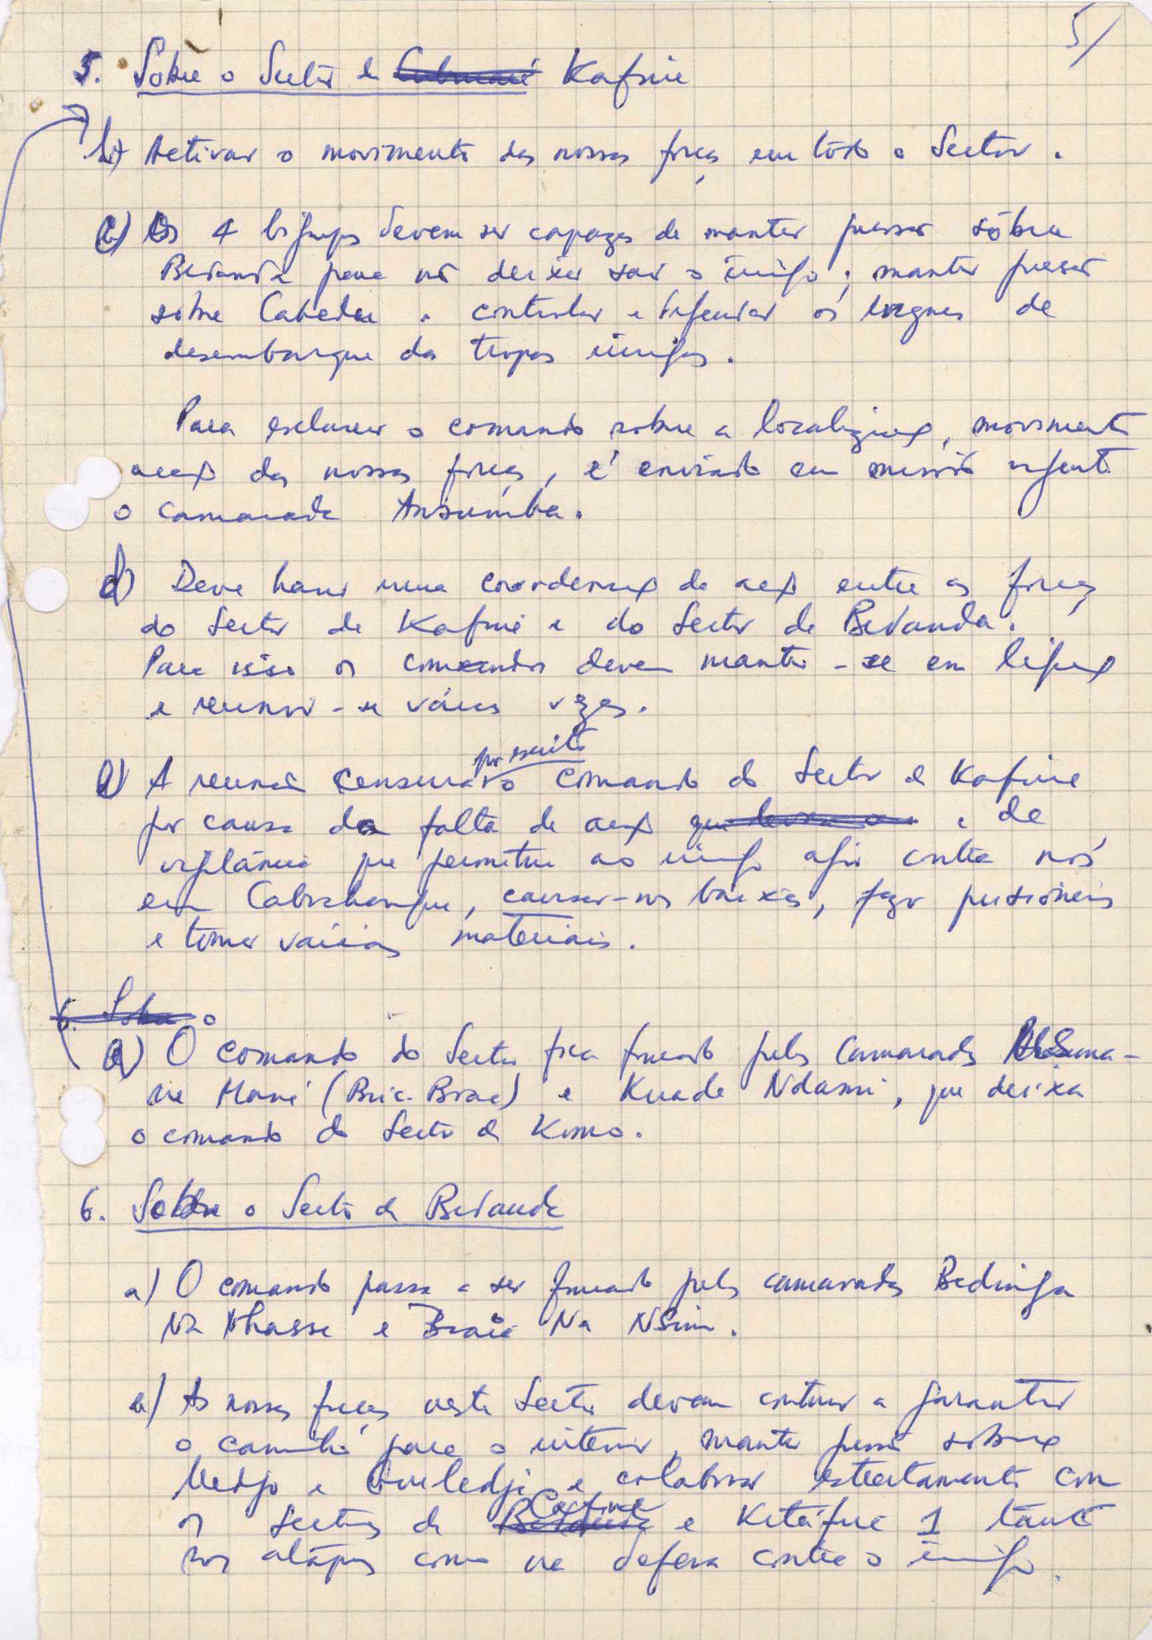 5/
5. Sobre o Sector de Cubucaré Kafine
b) Activar o movimento das nossas forças em todo o Sector.
c) Os 4 bigrupos devem ser capazes de manter pressão sôbre
Bedanda para não deixar sair o inimigo; manter pressão
sobre Cabedu e controlar e defender os lugares de
desembarque das tropas inimigas.
Para esclarecer o comando sobre a localização, movimento
acção das nossas forças, é enviado em missão urgente
o camarada Ansumba.
d) Deve haver uma coordenação de acção entre as forças
do Sector de Kafine e do Sector de Bedanda.
Para isso os comandos devem manter-se em ligação
e reunir-se várias vezes.
por escrito
e) A reunião censura o comando do Sector de Kafine
por causa da falta de acção que deixa o e de
vigilância que permitiu ao inimigo agir contra nós
em Cabochanque, causar-nos baixas, fazer prisioneiros
e tomar vários materiais.
6. Sobre o
a) O comando do Sector fica formado pelos camaradas
ne Mané (Bric-Brac) e Kuade Ndami, que deixa
o comando do Sector de Komo.
6. Sobre o Sector de Bedanda
a) O comando passa a ser formado pelos camaradas Bedinga
Na Nhasse e Braia Na NSim.
b) As nossas forças neste Sector devem continuar a garantir
o caminho para o interior, manter pressão sobre
Medjo e Guiledje e colaborar estreitamente com
Cafine
os sectores de Bedanda e Kitáfine 1 tanto
nos ataques como na defesa contra o inimigo.